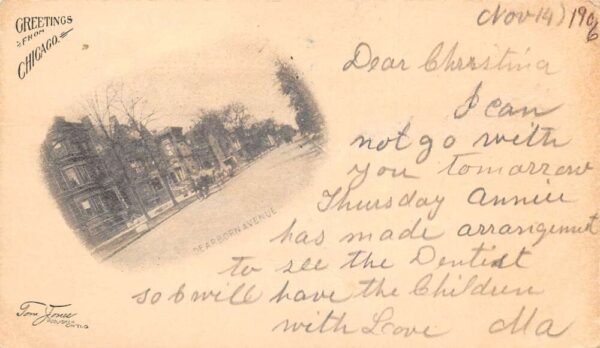 GREETINGS
FROM
CHICAGO.
Nov 14) 1906
Dear Christina
I can
not go with
you tomorrow
Thursday Annie
has made arrangement
to see the Dentist
so I will have the Children
with Love Ma
DEARBORN AVENUE
Tom Jones